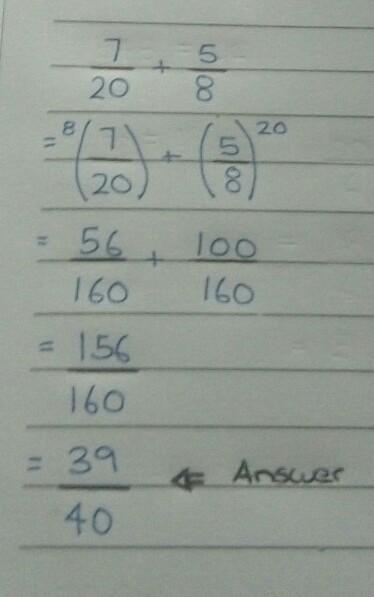 7/20 + 5/8
= ⁸(7/20) + (5/8)²⁰
= 56/160 + 100/160
= 156/160
= 39/40 ⇐ Answer